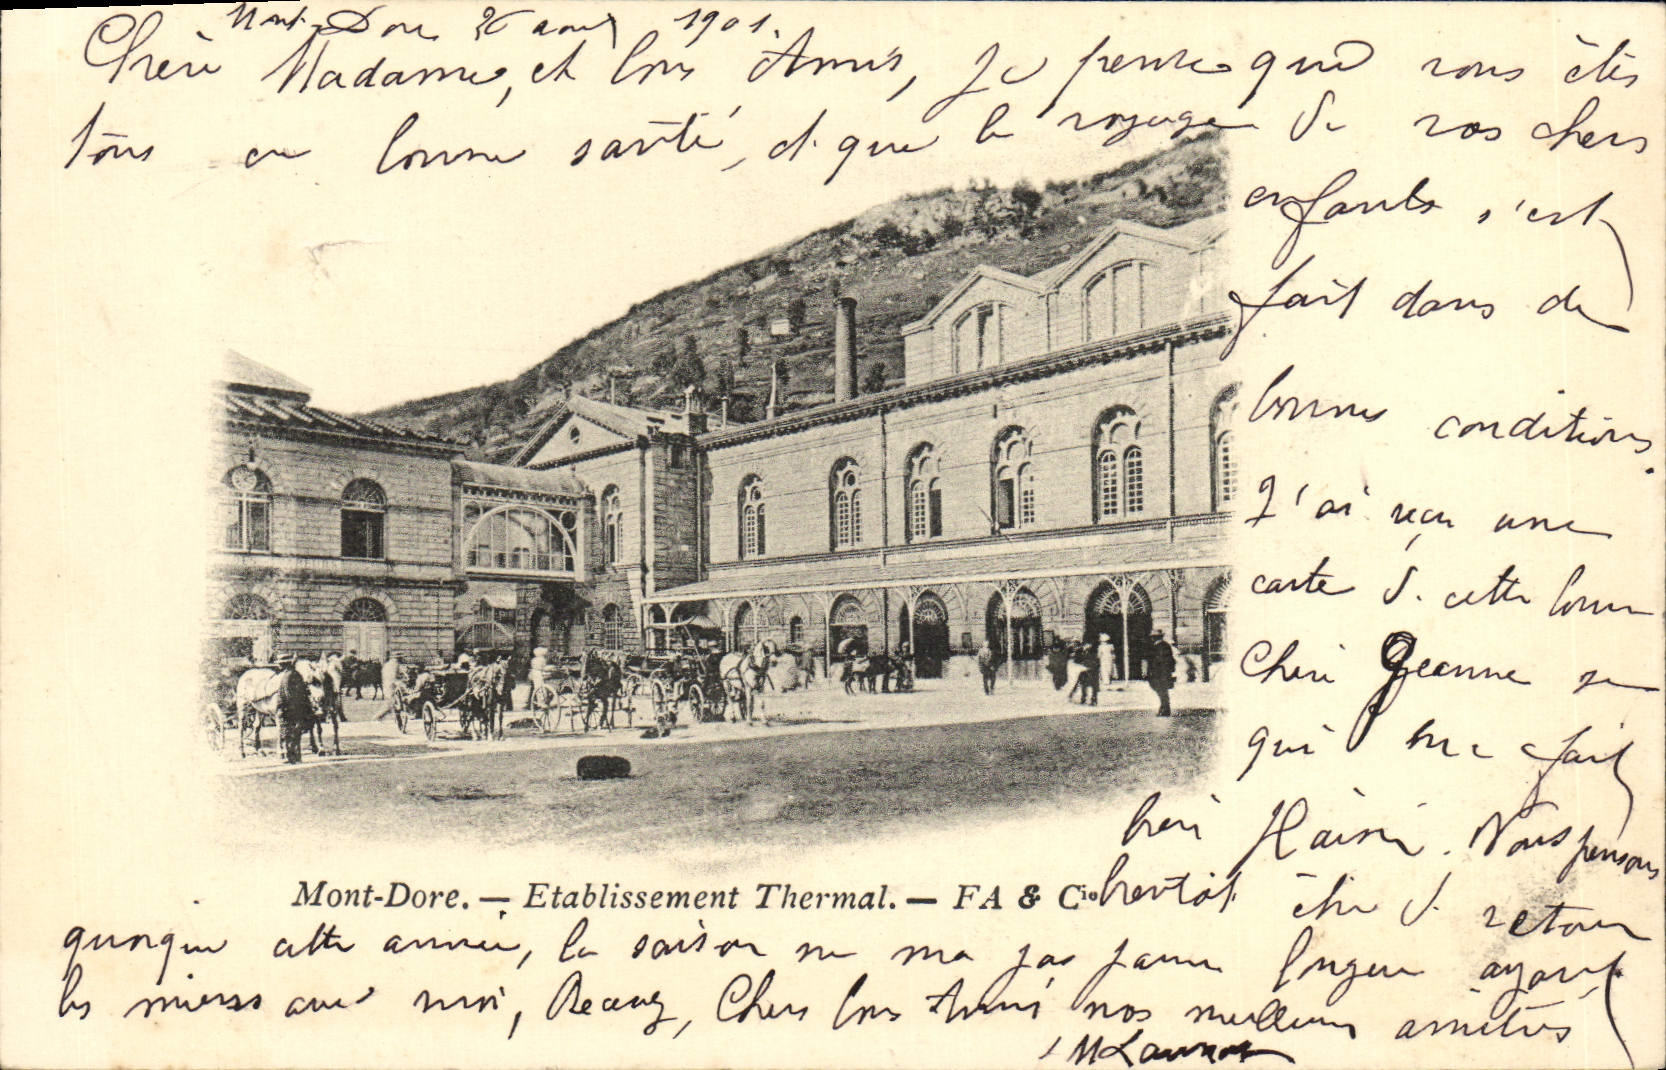 Mont-Dore 26 aout 1901.
Chère Madame, et bons Amis, Je pense que vous êtes
tous en bonne santé, et que le voyage de vos chers
enfants s'est
fait dans de
bonnes conditions.
J'ai reçu une
carte de cette bonne
Chère Jeanne ce
qui me fait
bien Plaisir. Nous pensons
Mont-Dore. — Etablissement Thermal. — FA & Cie
bientôt être de retour
quoique cette année, la saison ne m'a pas parue longue ayant
les miens avec moi, Recevez, Chers bons Amis nos meilleures amitiés